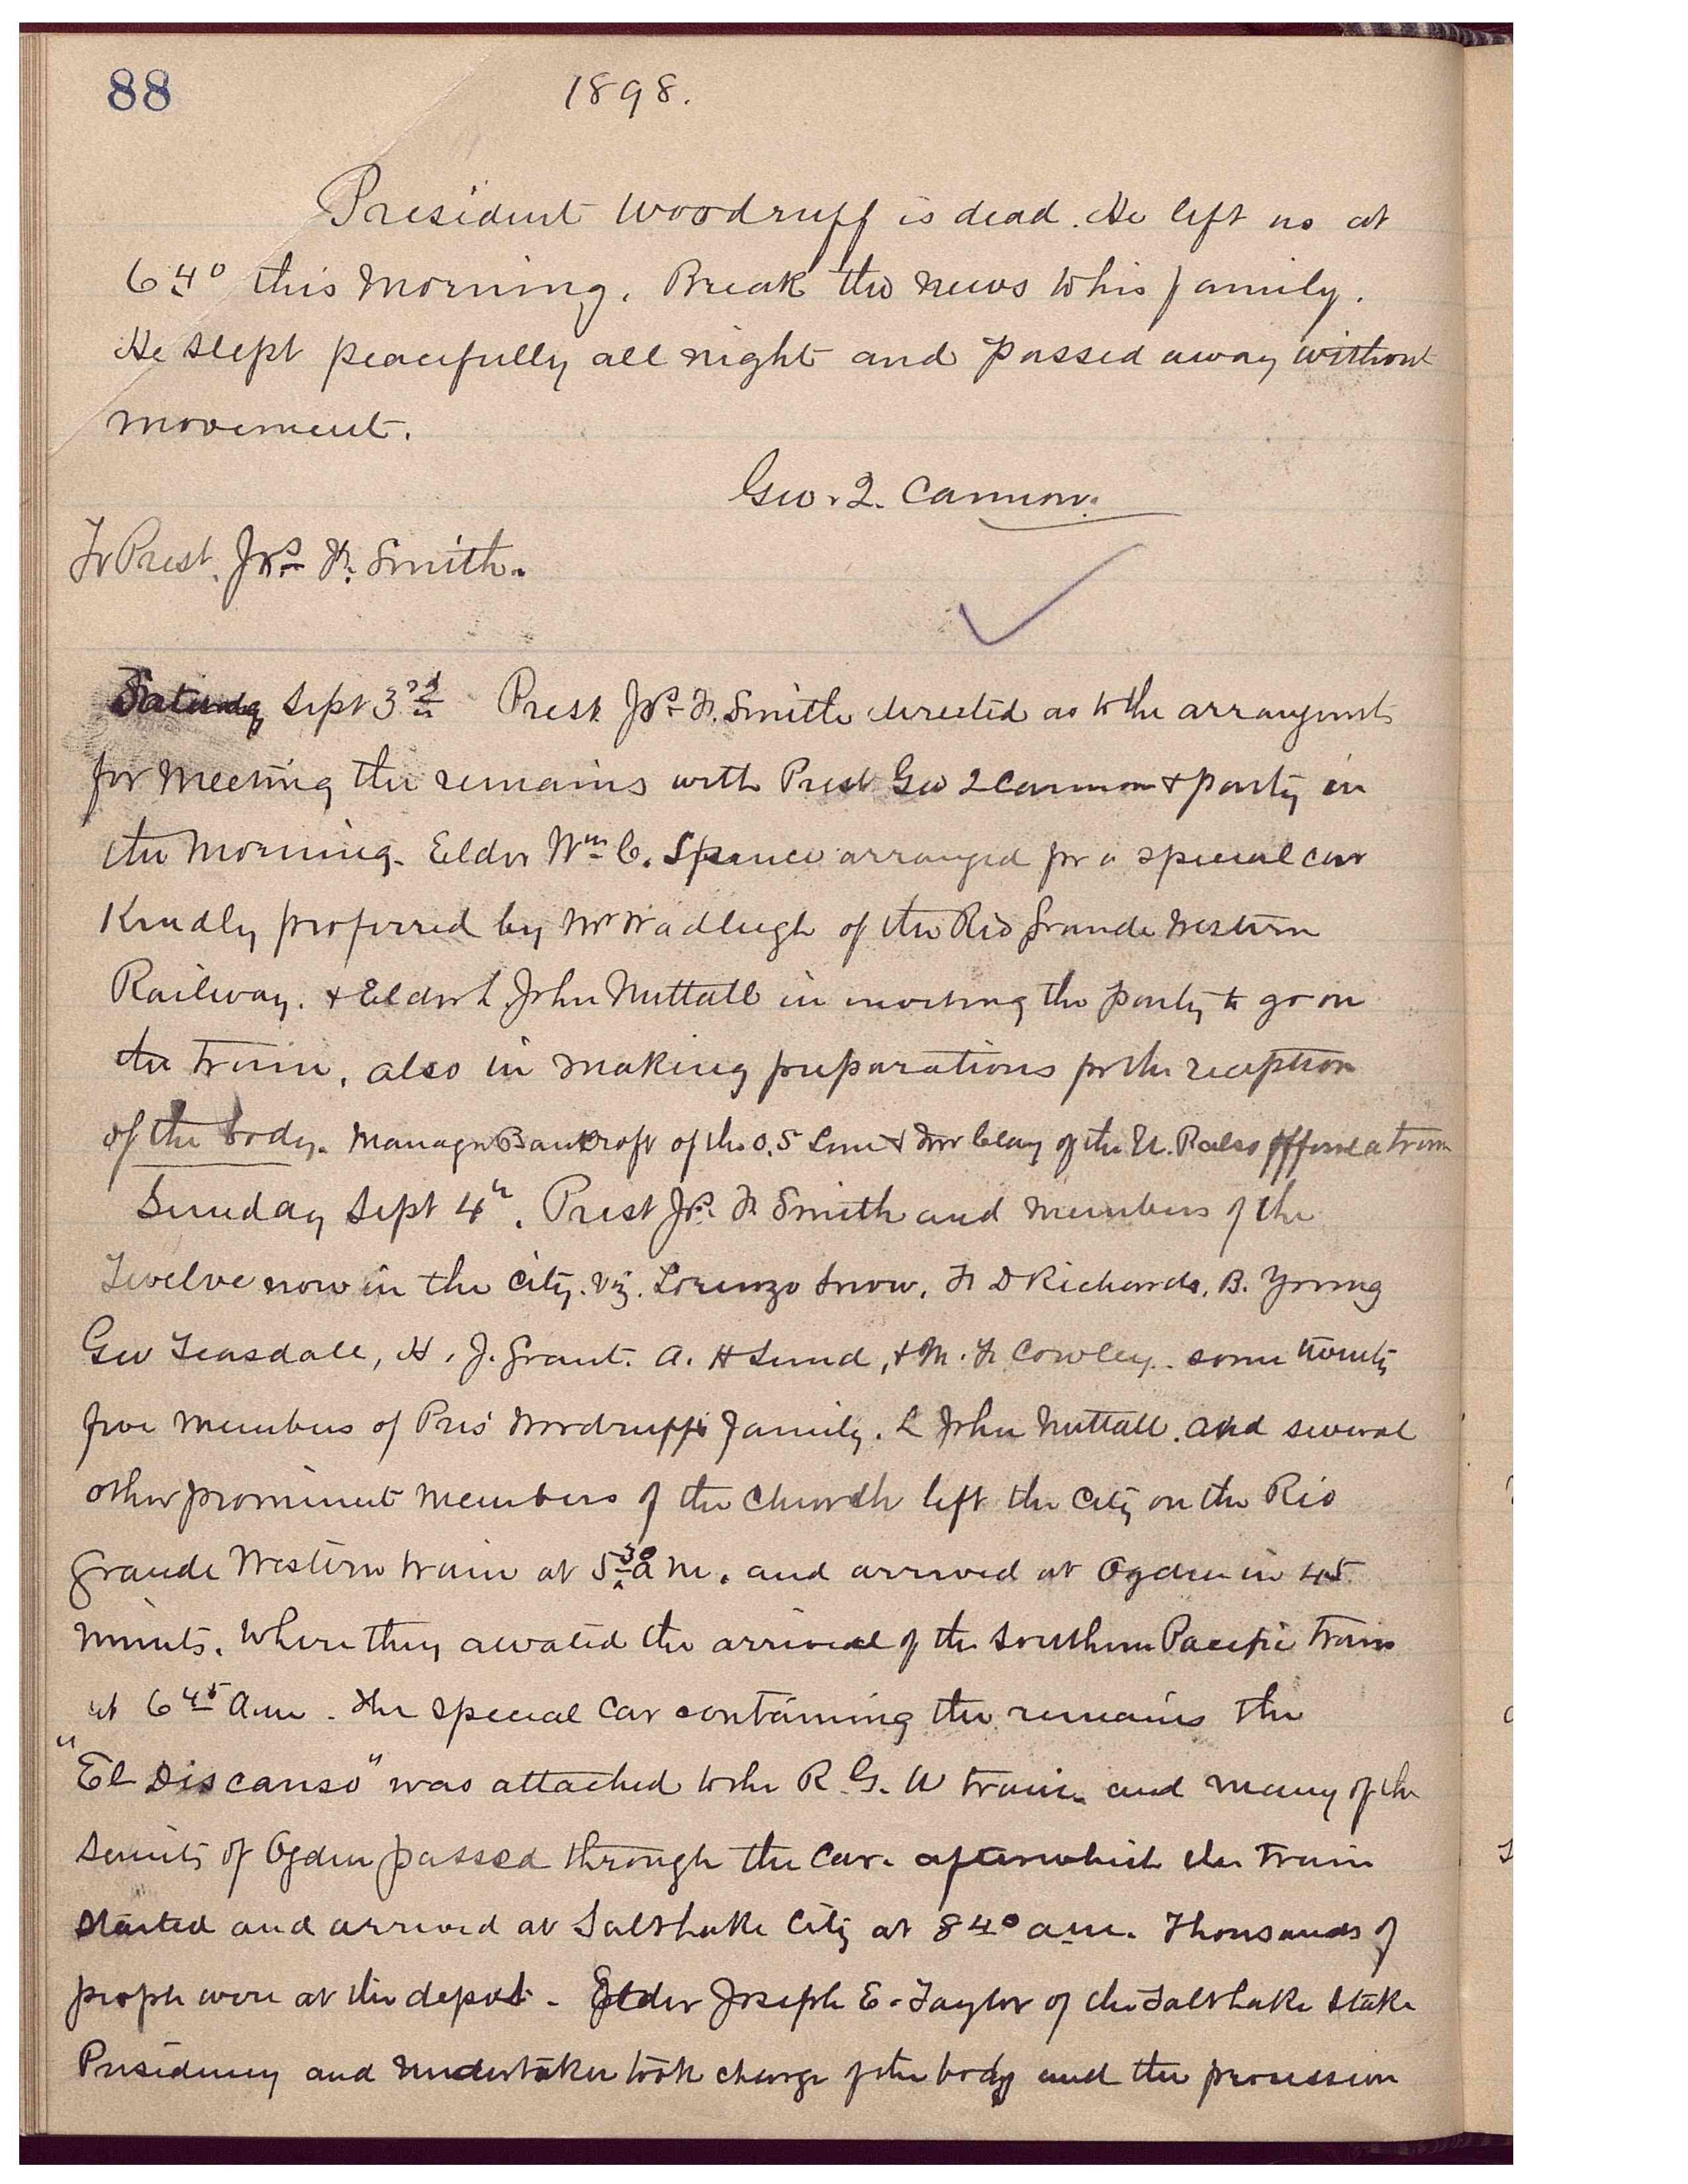 88
1898.
President Woodruff is dead. He left us at
6 40 this morning. Break the news to his family.
He slept peacefully all night and passed away without
movement.
Geo. Q. Cannon.
To Prest. Jos. F. Smith.
Saturday Sept 3rd Prest Jos. F. Smith directed as to the arrangmts
for meeting the remains with Prest Geo Q Cannon & party in
the morning. Elder Wm C. Spence arranged for a special car
Kindly proferred by Mr Wadleigh of the Rio Grande Western
Railway. & Elder L John Nuttall in inviting the party to go on
the train, also in making preparations for the reception
of the body. Manager Bancroft of the O.S Line & Mr Clay of the U. P. also offered a train
Sunday Sept 4th. Prest Jos. F. Smith and members of the
Twelve now in the City. viz. Lorenzo Snow, F D Richards, B. Young
Geo Teasdale, H. J. Grant. A. H Lund, & M. F. Cowley. some twenty
five members of Pres Woodruffs family. L John Nuttall. and several
other prominent members of the Church left the City on the Rio
Grande Western train at 5 30 a m. and arrived at Ogden in 45
minuts. Where they awated the arrival of the Southern Pacific train
at 6 45 a.m. The special car containing the remains the
"El Discanso" was attached to the R. G. W train. and many of the
Saints of Ogden passed through the Car. after which the train
started and arrived at Salt Lake City at 8 40 a.m. Thousands of
people were at the depot. Elder Joseph E. Taylor of the Salt Lake Stake
Presidency and undertaker took charge of the body and the procession